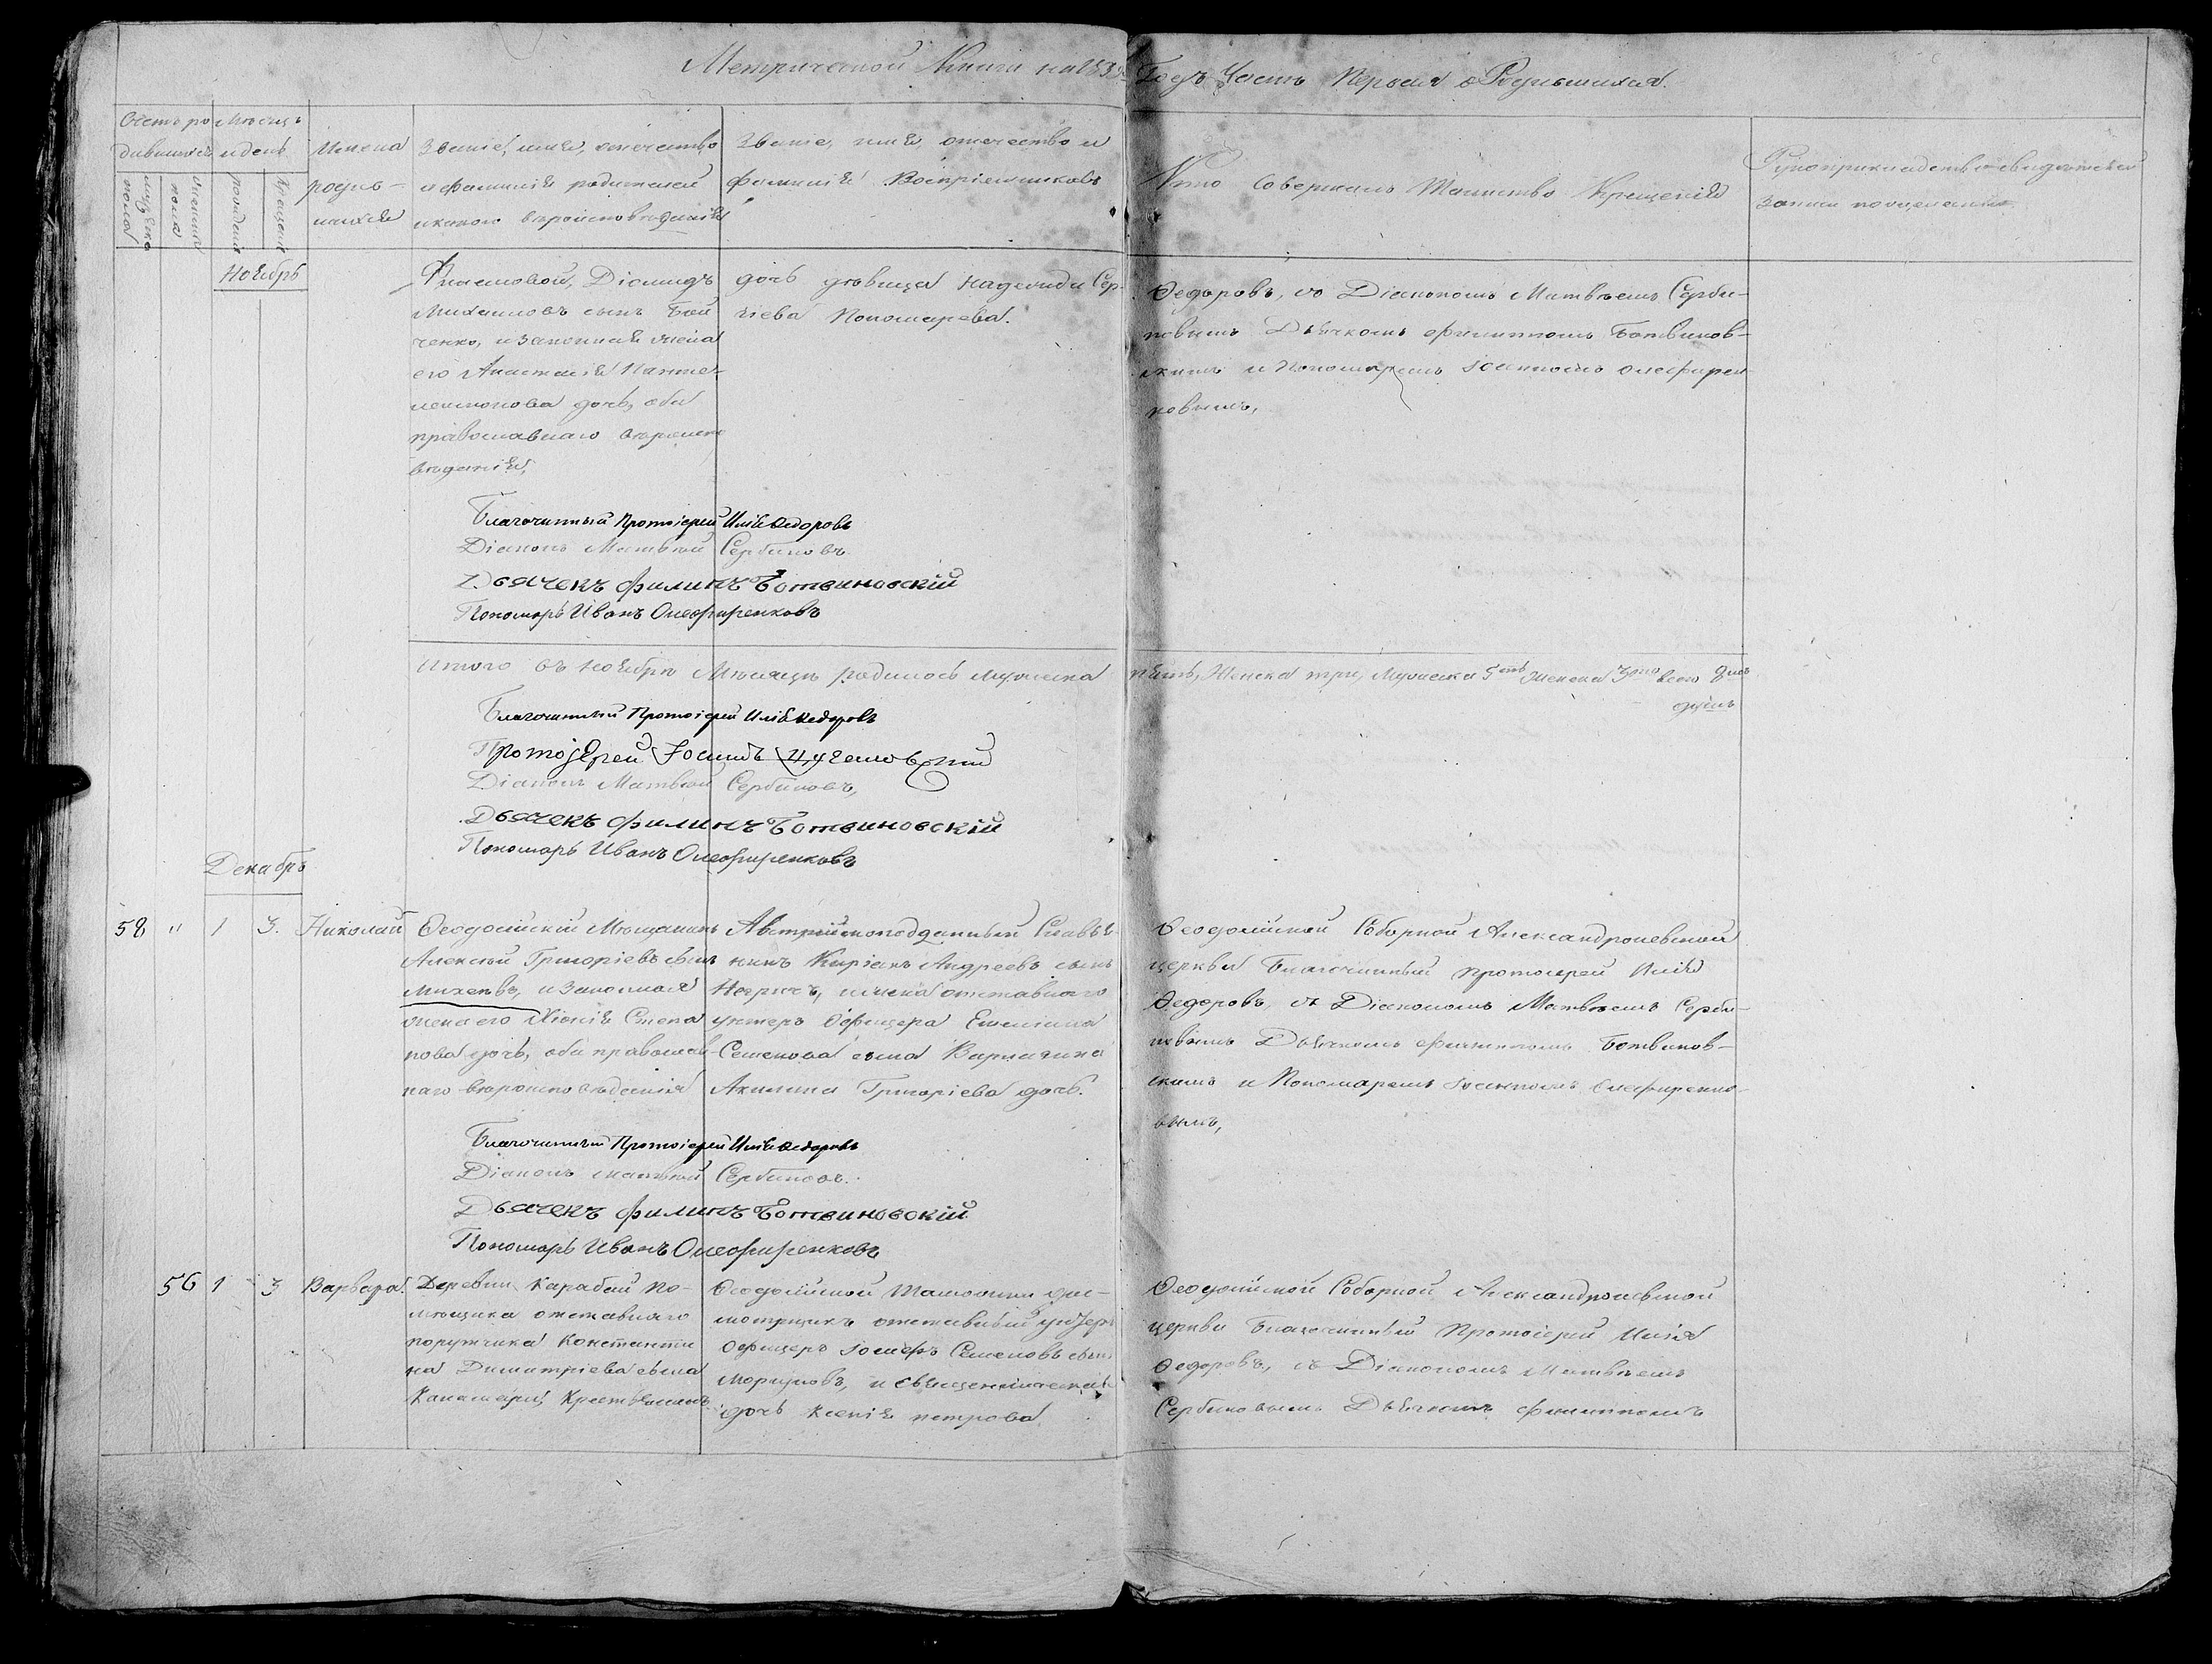 Метрической Книги на 183 Годъ Часть Первая о Родившихся.
Счетъ ро
дившихся
мужеска
пола
женска
пола
Мѣсяцъ
и день
рожденія
крещенія
Имена
родив-
шихся
Званіе, имя, отчество
и фамилія родителей
и какого вѣроисповѣданія
Званіе, имя, отечество и
фамилія Воспріемниковъ
Кто совершалъ Таинство Крещенія
Рукоприкладство свидѣтелей
записи по желанію
Ноябрь
Діомидъ
Михайловъ сынъ Бой
ченко, и законная жена
его Анастасія Панте-
леимонова дочь, оба
православнаго вѣроиспо
вѣданія,
дочь дѣвица Надежда Сер-
гіева Пономарева.
Федоровъ, съ Діакономъ Матвѣемъ Серби-
новымъ Дьячкомъ Филиппомъ Ботвинов-
скимъ и Пономаремъ Іоанномъ Олефирен-
ковымъ,
Благочинный Протоіерей Илія Федоровъ
Діаконъ Матвѣй Сербиновъ
Дьячекъ Филипъ Ботвиновскій
Пономарь Иванъ Олефиренковъ
Итого въ Ноябрѣ Мѣсяцѣ родилось мужеска пять, Женска три, Мужеска 5ть Женска 3 всего
Благочинный Протоіерей Илія Федоровъ
Протоіерей Іосифъ
Діаконъ Матвѣй Сербиновъ,
Дьячекъ Филипъ Ботвиновскій
Пономарь Иванъ Олефиренковъ
Декабрь
58 " 1 3. Николай
Феодосійскій Мѣщанинъ
Алексѣй Григоріевъ сынъ
Михѣевъ, и законная
жена его Хіонія Степа
нова дочь, оба православ-
наго вѣроисповѣданія
Австрійскоподданный Славя-
нинъ Киріакъ Андреевъ сынъ
Негричъ, и жена отставнаго
унтеръ Офицера Емеліана
Семенова сына Варлагина
Акилина Григоріева дочь.
Феодосійской Соборной Александроневской
церкви Благочинный протоіерей Илія
Федоровъ, съ Діакономъ Матвѣемъ Серби-
новымъ Дьячкомъ Филиппомъ Ботвинов-
скимъ и Пономаремъ Іоанномъ Олефиренко-
вымъ,
Благочинный Протоіерей Илія Федоровъ
Діаконъ Матвѣй Сербиновъ.
Дьячекъ Филипъ Ботвиновскій
Пономарь Иванъ Олефиренковъ
56 1 3 Варвара.
Деревни Карабай по-
мѣщика отставнаго
порутчика Константи
на Димитріева сына
Феодосійской Таможни дос-
мотрщикъ отставный унтеръ
Офицеръ Іосифъ Семеновъ сынъ
и священническая
дочь Ксенія Петрова
Феодосійской Соборной Александроневской
церкви Благочинный Протоіерей Илія
Федоровъ, съ Діакономъ Матвѣемъ
Сербиновымъ Дьячкомъ Филиппомъ